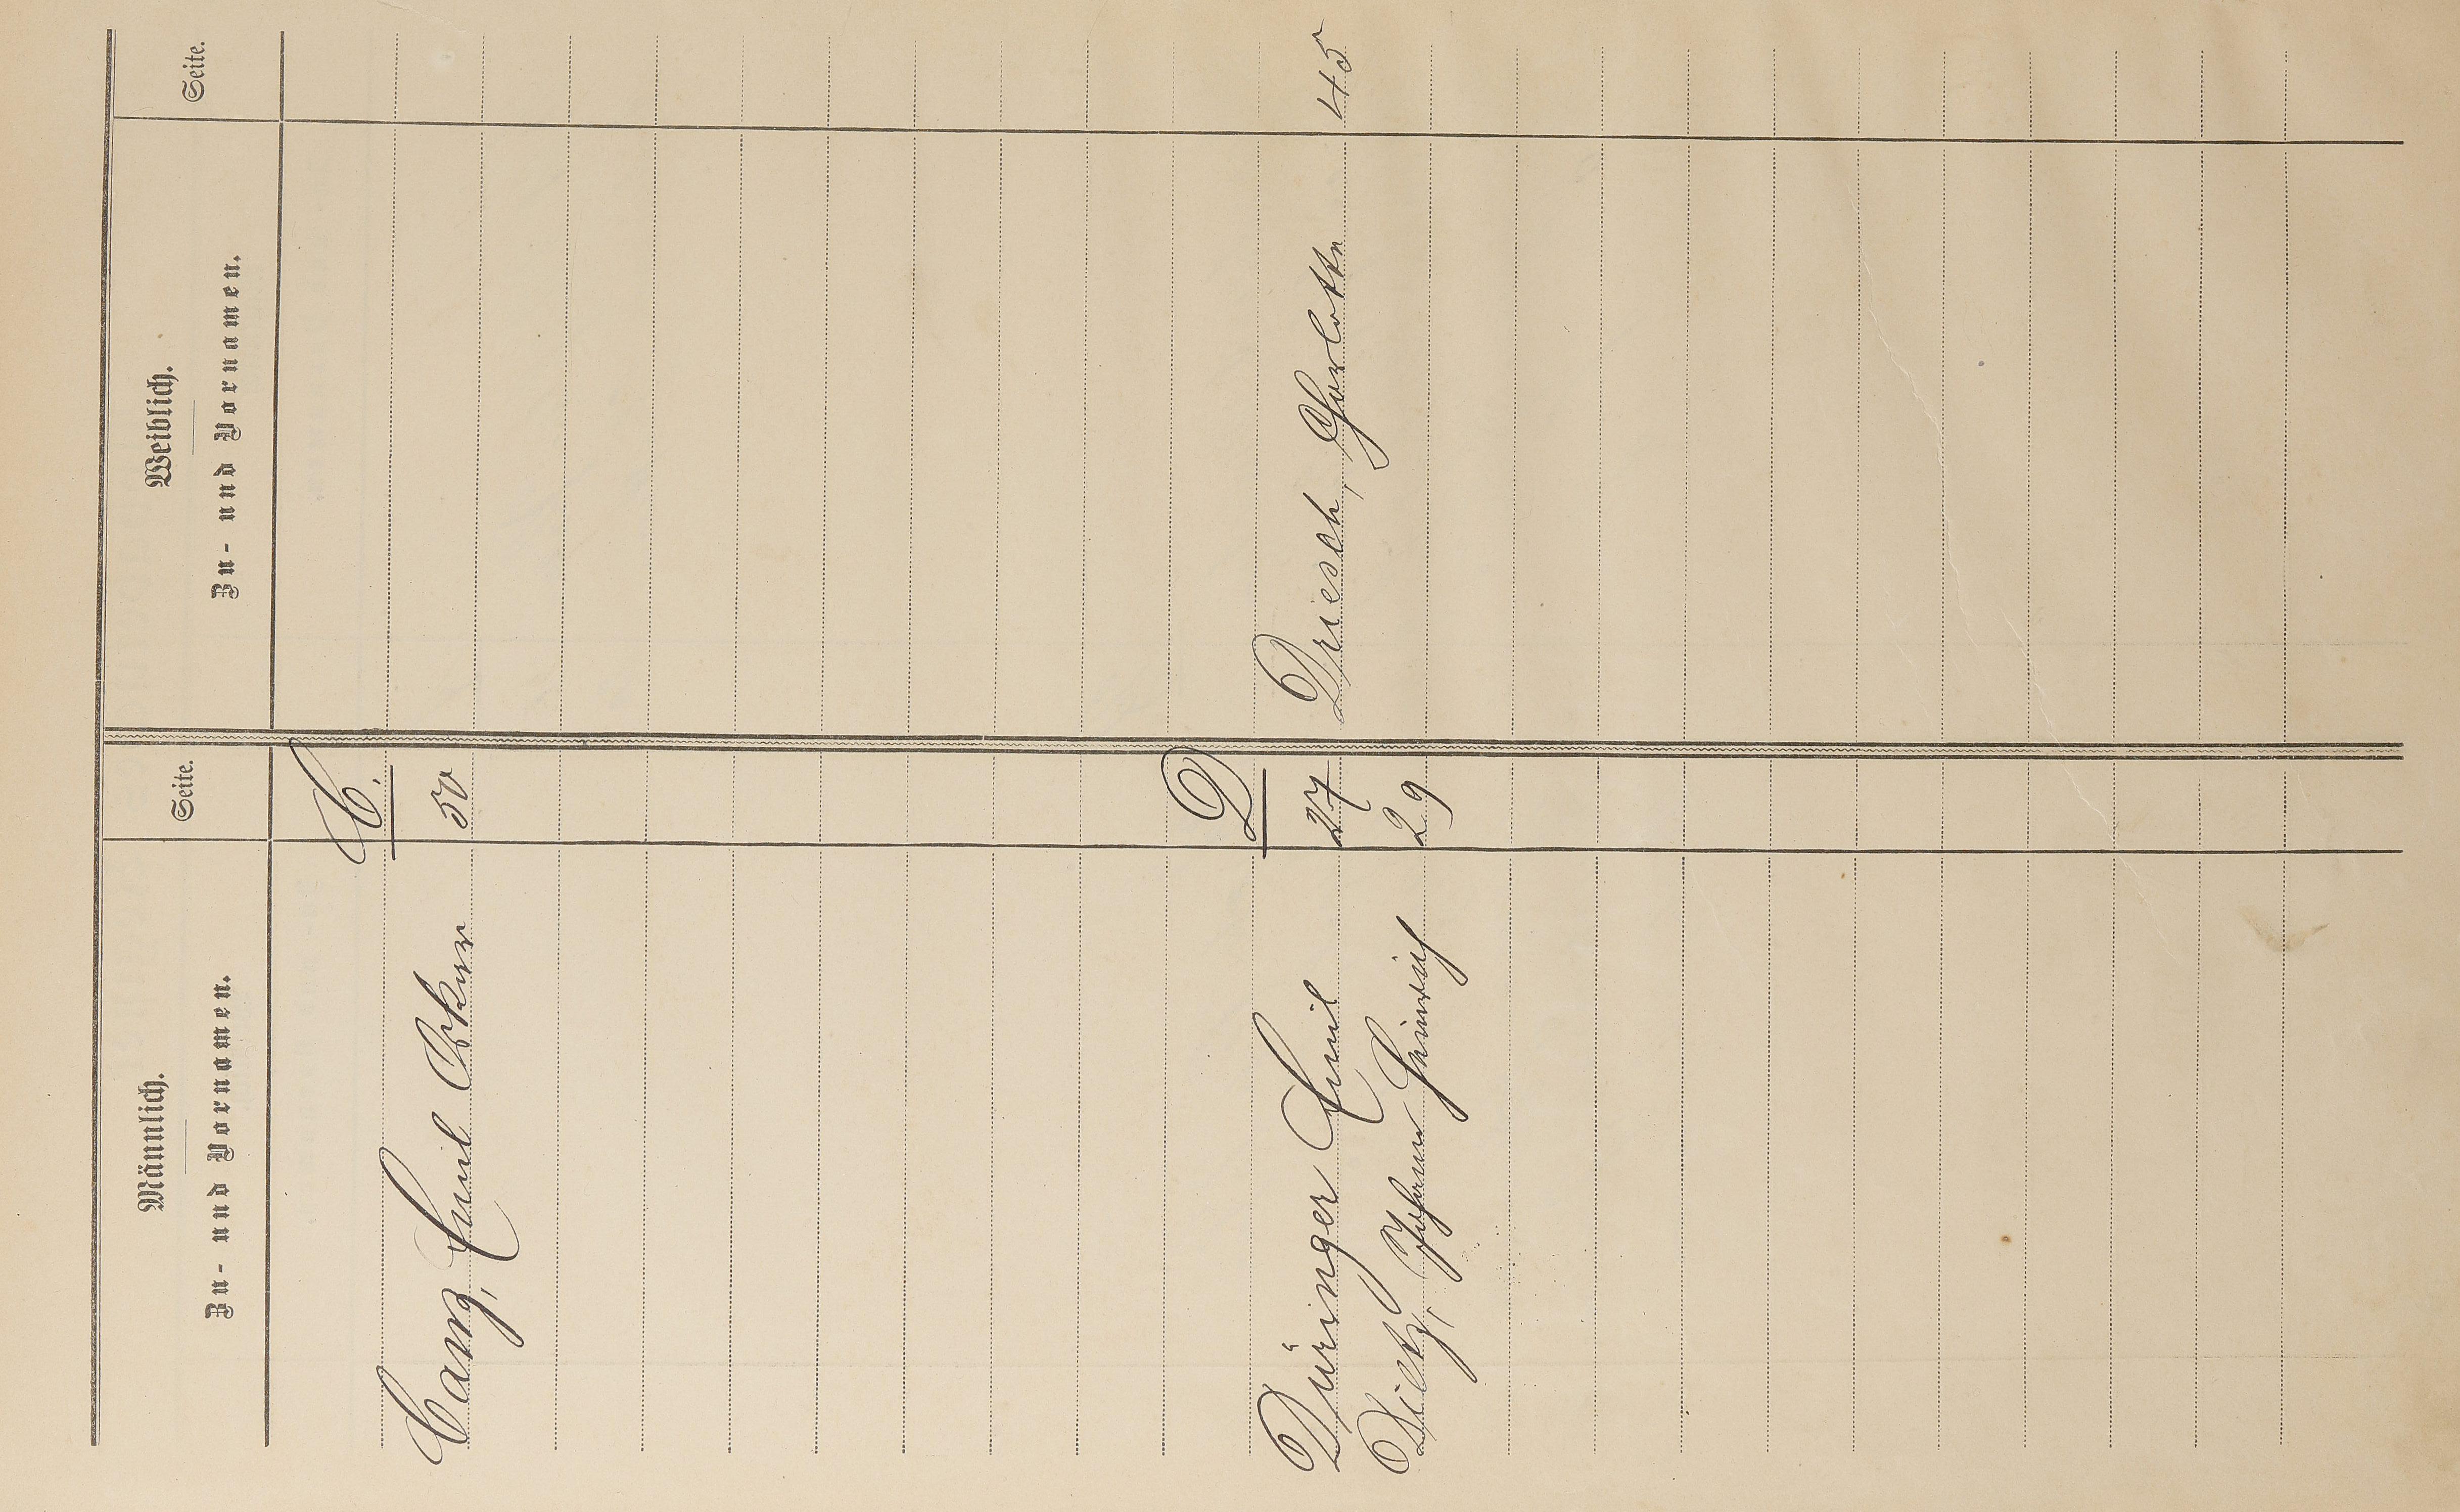 Männlich. Weiblich.
Zu- und Vornamen. Seite. Zu- und Vornamen. Seite.
C.
Canz, Emil Oskar 50
D
Düringer Emil 27 Driesch, Charlotte 45
Dietz, Johann Heinrich 29